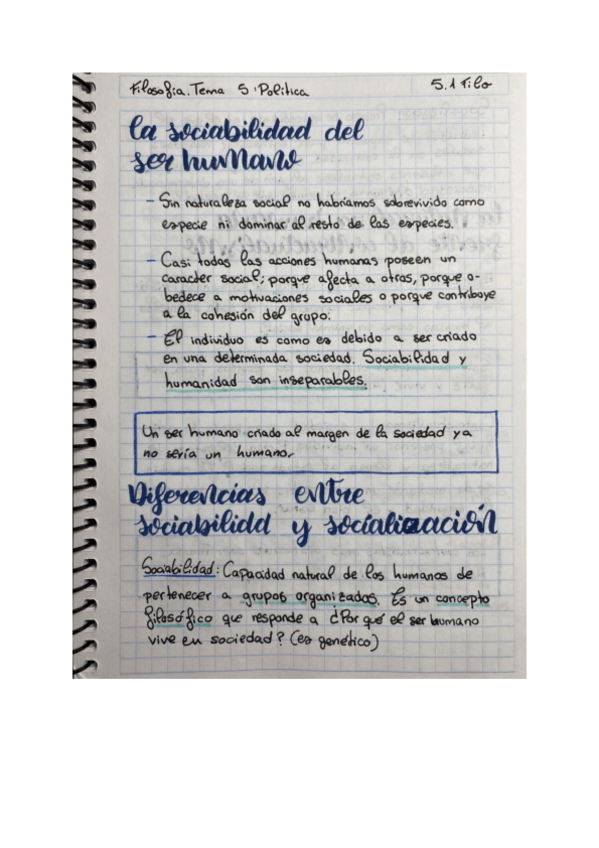 Filosofía. Tema 5: Política
5.1 Filo
La sociabilidad del
ser humano
- Sin naturaleza social no habríamos sobrevivido como
especie ni dominar al resto de las especies.
- Casi todas las acciones humanas poseen un
caracter social; porque afecta a otras, porque o-
bedece a motivaciones sociales o porque contribuye
a la cohesión del grupo.
- El individuo es como es debido a ser criado
en una determinada sociedad. Sociabilidad y
humanidad son inseparables.
Un ser humano criado al margen de la sociedad ya
no sería un humano.
Diferencias entre
sociabilidd y socialización
Sociabilidad: Capacidad natural de los humanos de
pertenecer a grupos organizados. Es un concepto
filosófico que responde a ¿Por qué el ser humano
vive en sociedad? (es genético)